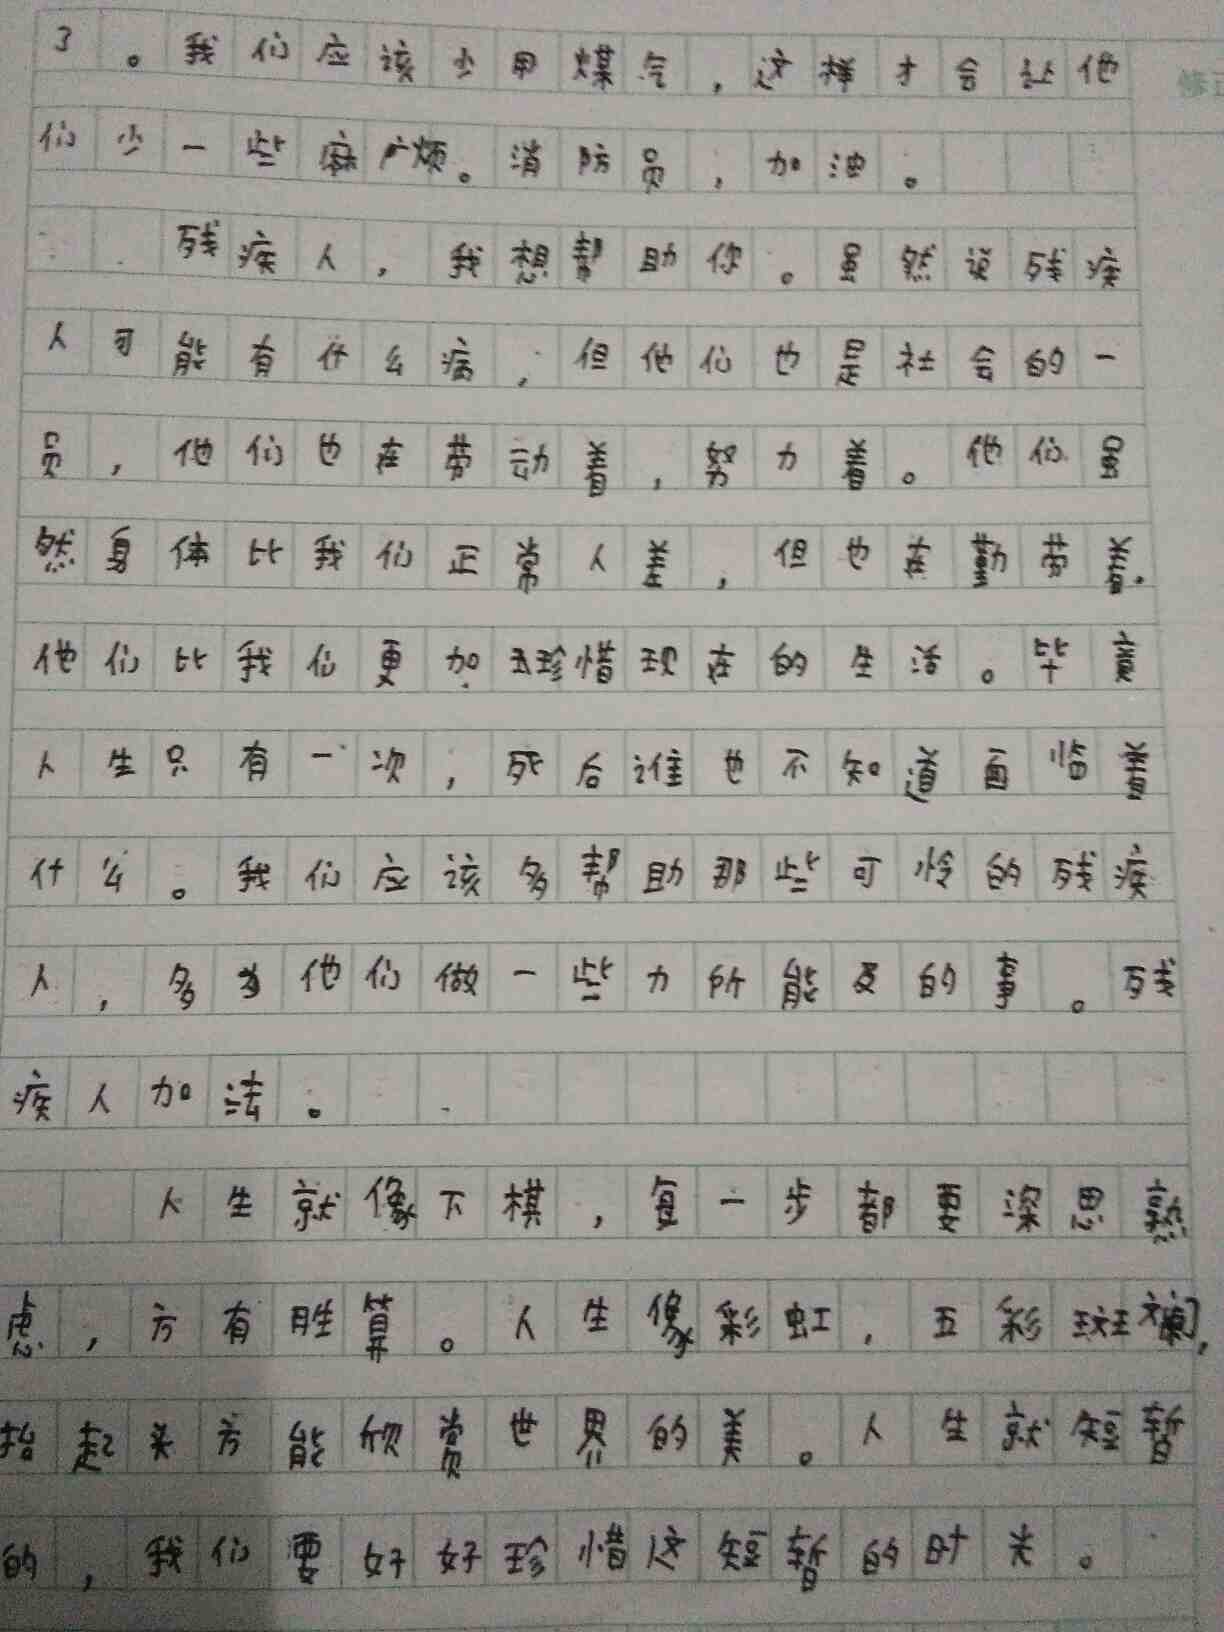 了。我们应该少用煤气，这样才会让他
们少一些麻烦。消防员，加油。
残疾人，我想帮助你。虽然说残疾
人可能有什么病，但他们也是社会的一
员，他们也在劳动着，努力着。他们虽
然身体比我们正常人差，但也在勤劳着。
他们比我们更加珍惜现在的生活。毕竟
人生只有一次，死后谁也不知道面临着
什么。我们应该多帮助那些可怜的残疾
人，多为他们做一些力所能及的事。残
疾人加法。
人生就像下棋，每一步都要深思熟
虑，方有胜算。人生像彩虹，五彩斑斓，
抬起头方能欣赏世界的美。人生就短暂
的，我们要好好珍惜这短暂的时光。